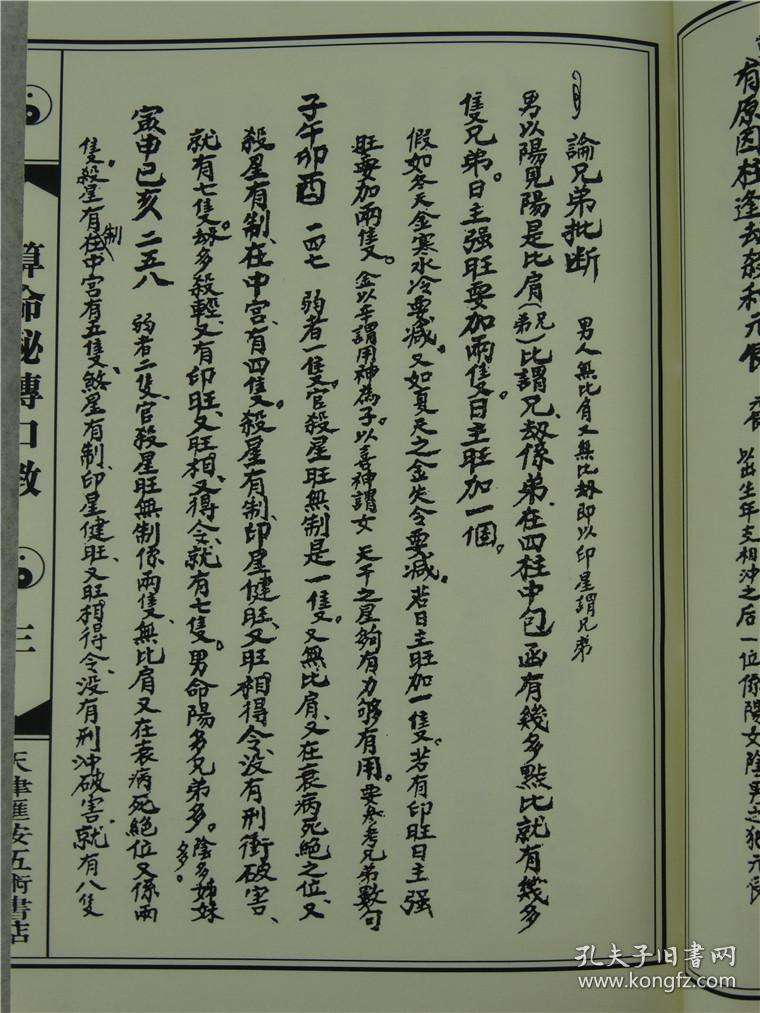 有原因柱逢劫殺和元辰
以出生年支相沖之后一位係陽女陰男之犯元辰
論兄弟批断 男人無比肩又無比刼即以印星謂兄弟
男以陽見陽是比肩(兄弟)比謂兄、刼係弟、在四柱中包函有幾多點比就有幾多
隻兄弟。日主强旺要加兩隻日主旺加一個。
假如冬天金寒水冷要减。又如夏天之金失令要减。若日主旺加一隻。若有印旺日主强
旺要加兩隻。金以壬謂用神為子。以喜神謂女 天干之星夠有力夠有用。要參考兄弟數句
子午卯酉 一四七 弱者一隻。官殺星旺無制是一隻。又無比肩、又在衰病死絕之位、又
殺星有制、在中宮、有四隻。殺星有制、印星健旺、又旺相得令、沒有刑衝破害、
就有七隻。刼多殺輕、又有印旺、又旺相、又得令、就有七隻。男命陽多兄弟多。陰多姊妹多。
寅申巳亥 二五八 弱者二隻官殺星旺無制係兩隻、無比肩又在衰病死絕位又係兩
隻。殺星有制在中宮有五隻、煞星有制、印星健旺、又旺相得令、沒有刑冲破害、就有八隻
算命秘傳口教
三
天津匯安五術書店
孔夫子旧書网
www.kongfz.com